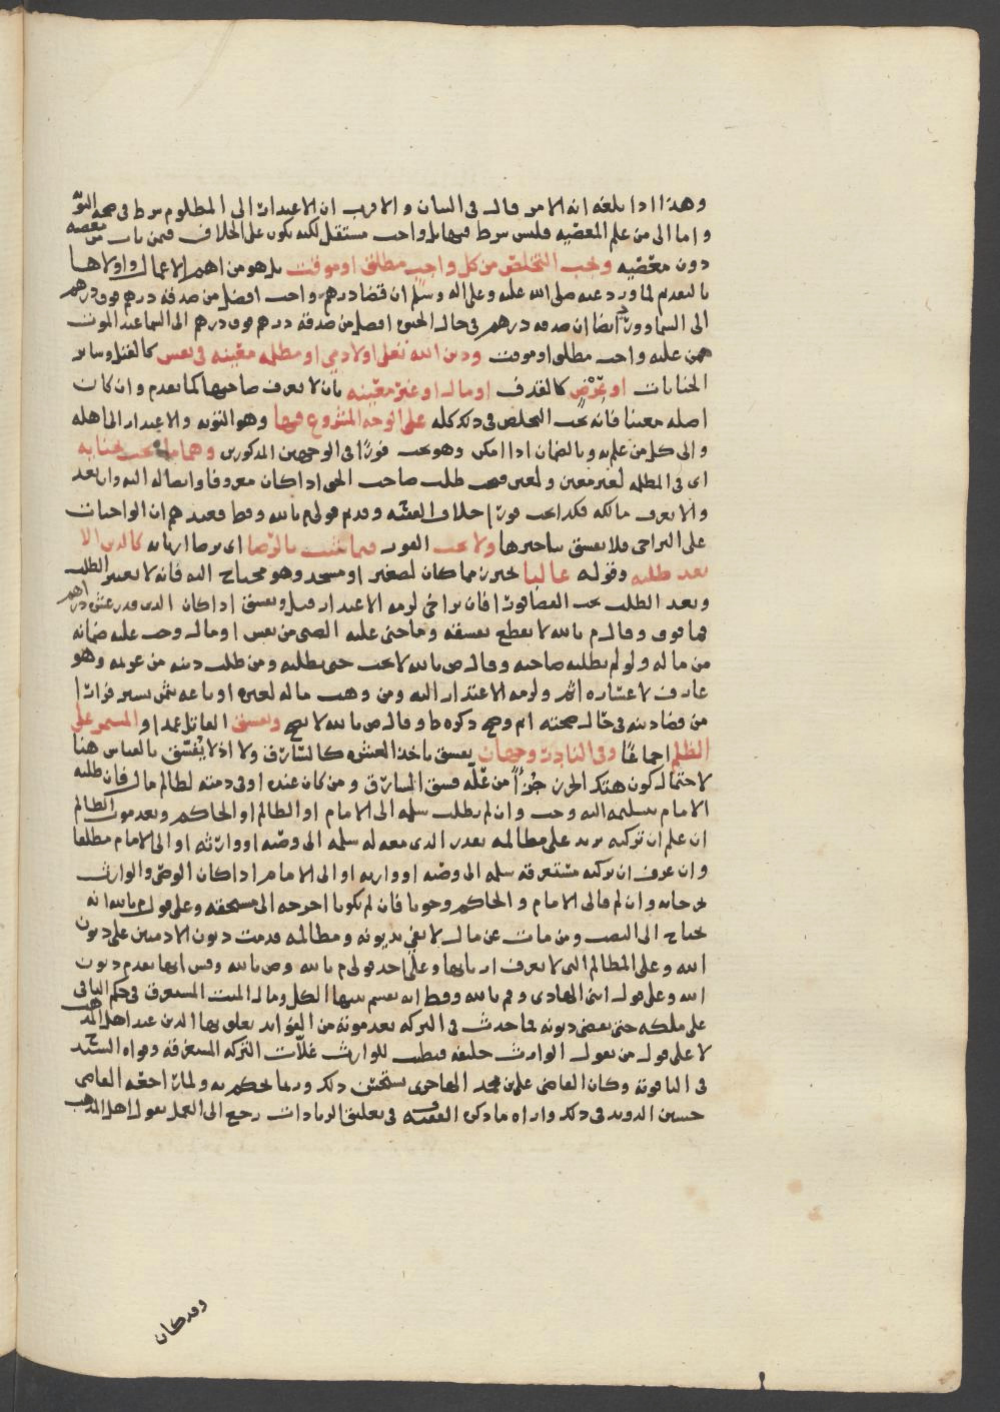 وهذا اذا بلغه انه الامر قال في البيان والاقرب ان الاعتذار الى المظلوم شرط في صحة التوبة
واما الى من علم المعصيه فليس بشرط فيها بل واجب مستقل لكنه يكون على الخلاف فيمن تاب من معصيه
دون معصيه ويجب التخلص من كل واجب مطلق او موقت بل هو من اهم الاعمال واولاها
بالتقديم لما ورد عنه صلى الله عليه وعلى اله وسلم ان قضا درهم واجب افضل من صدقة درهم فوق درهم
الى السما وورد ايضا ان صدقه درهم في حال الحيوه افضل من صدقة درهم فوق درهم الى السما عند الموت
فمن عليه واجب مطلق او موقت ودين الله تعلى او لادمي او مظلمه معينه في نفس كالقتل وساير
الجنايات او عرض كالقذف او مال او غير معينه بان لا يعرف صاحبها كما تقدم وان كان
اصله معينا فانه يجب التخلص في ذلك كله على الوجه المشروع فيها وهو التوبه والاعتذار الى اهله
والى كل من علم به وبالضمان اذا امكن وهو يجب فورًا في الوجهين المذكورين وهما ما يجب بجنايه
اي في المظلمه لغير معين ولمعين فيجب طلب صاحب الحق اذا كان معروفا وايصاله اليه وان بعد
والا يعرف مالكه فكذا يجب فورا خلاف الفقيه وقديم قولي م بالله وقط فعندهم ان الواجبات
على التراخي فلا يفسق بتاخيرها ولا يجب الفور فيما ثبت بالرضا اي برضا اربابه كالدين الا
بعد طلبه وقوله غالبا يحترز مما كان لصغير او مسجد وهو محتاج اليه فانه لا يعتبر الطلب
وبعد الطلب يجب القضا فورا فان تراخى لزمه الاعتذار قيل ويفسق اذا كان الذي قدر عشرة دراهم
فما فوق وقال م بالله لا يقطع بفسقه وما جنى عليه الصبي من نفس او مال وجب عليه ضمانه
من ماله ولو لم يطلبه صاحبه وقال ص بالله لا يجب حتى يطلبه ومن طلب دينه من غريمه وهو
عارف لاعساره اثم ولزمه الاعتذار اليه ومن وهب ماله لغيره او باعه بثمن يسير فرارا
من قضا دينه في حال صحته اثم وصح ذكره ط وقال ص بالله لا يصح ويفسق القاتل عمدا والمستمر على
الظلم اجماعًا وفي النادر وجهان يفسق باخذ العشره كالسارق ولا اذ لا يفسق بالقياس هنا
لاحتمال كون هتك الحرز جزًا من علّه فسق السارق ومن كان عنده او في ذمته لظالم مال فان طلبه
الامام تسليمه اليه وجب وان لم يطلب سلمه الى الامام او الظالم او الحاكم وبعد موت الظالم
ان علم ان تركته تزيد على مظالمه بقدر الذي معه له سلمه الى وصيه او وارثه او الى الامام مطلقا
وان عرف ان تركته مستغرقه سلمه الى وصيه او وارثه او الى الامام اذا كان الوصي والوارث
يخرجانه وان لم فالى الامام والحاكم وجوبا فان لم يكونا اخرجه الى مستحقه وعلى قول م بالله انه
يحتاج الى النصب ومن مات عن مال لا يفي بديونه ومظالمه قدمت ديون الادميين على ديون
الله وعلى المظالم التي لا يعرف اربابها وعلى احد قولي م بالله وص بالله وقس انها تقدم ديون
الله وعلى قول ابني الهادي وقم بالله وقط انه يقسم بينها الكل ومال الميت المستغرق في حكم الباقي
على ملكه حتى يقضي ديونه فما حدث في التركه بعد موته من الفوايد تعلق بها الدين عند اهل المذهب
لا على قول من يقول الوارث خليفه فيطيب للوارث غلّات التركه المستغرقه وقواه السيد ح
في الياقوته وكان القاضي علي بن محمد الهاجري يستحسن ذلك وربما يحكم به ولما راجعه القاضي
حسين الذويد في ذلك واراه ما ذكره الفقيه ف في تعليق الزيادات رجع الى العمل بقول اهل المذهب
وقد كان